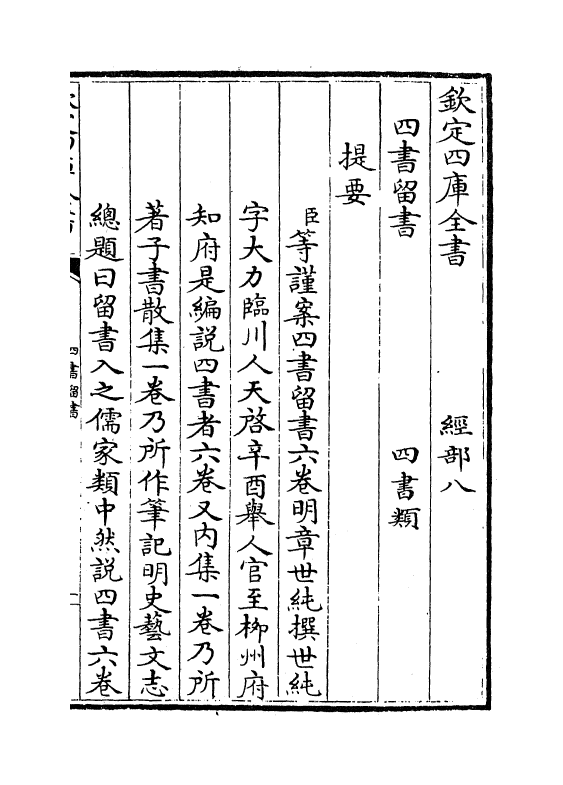 欽定四庫全書　經部八
四書留書　四書類
提要
臣等謹案四書留書六卷明章世純撰世純
字大力臨川人天啓辛酉舉人官至栁州府
知府是編説四書者六卷又内集一卷乃所
著子書散集一卷乃所作筆記明史藝文志
總題曰留書入之儒家類中然説四書六卷
四書留書